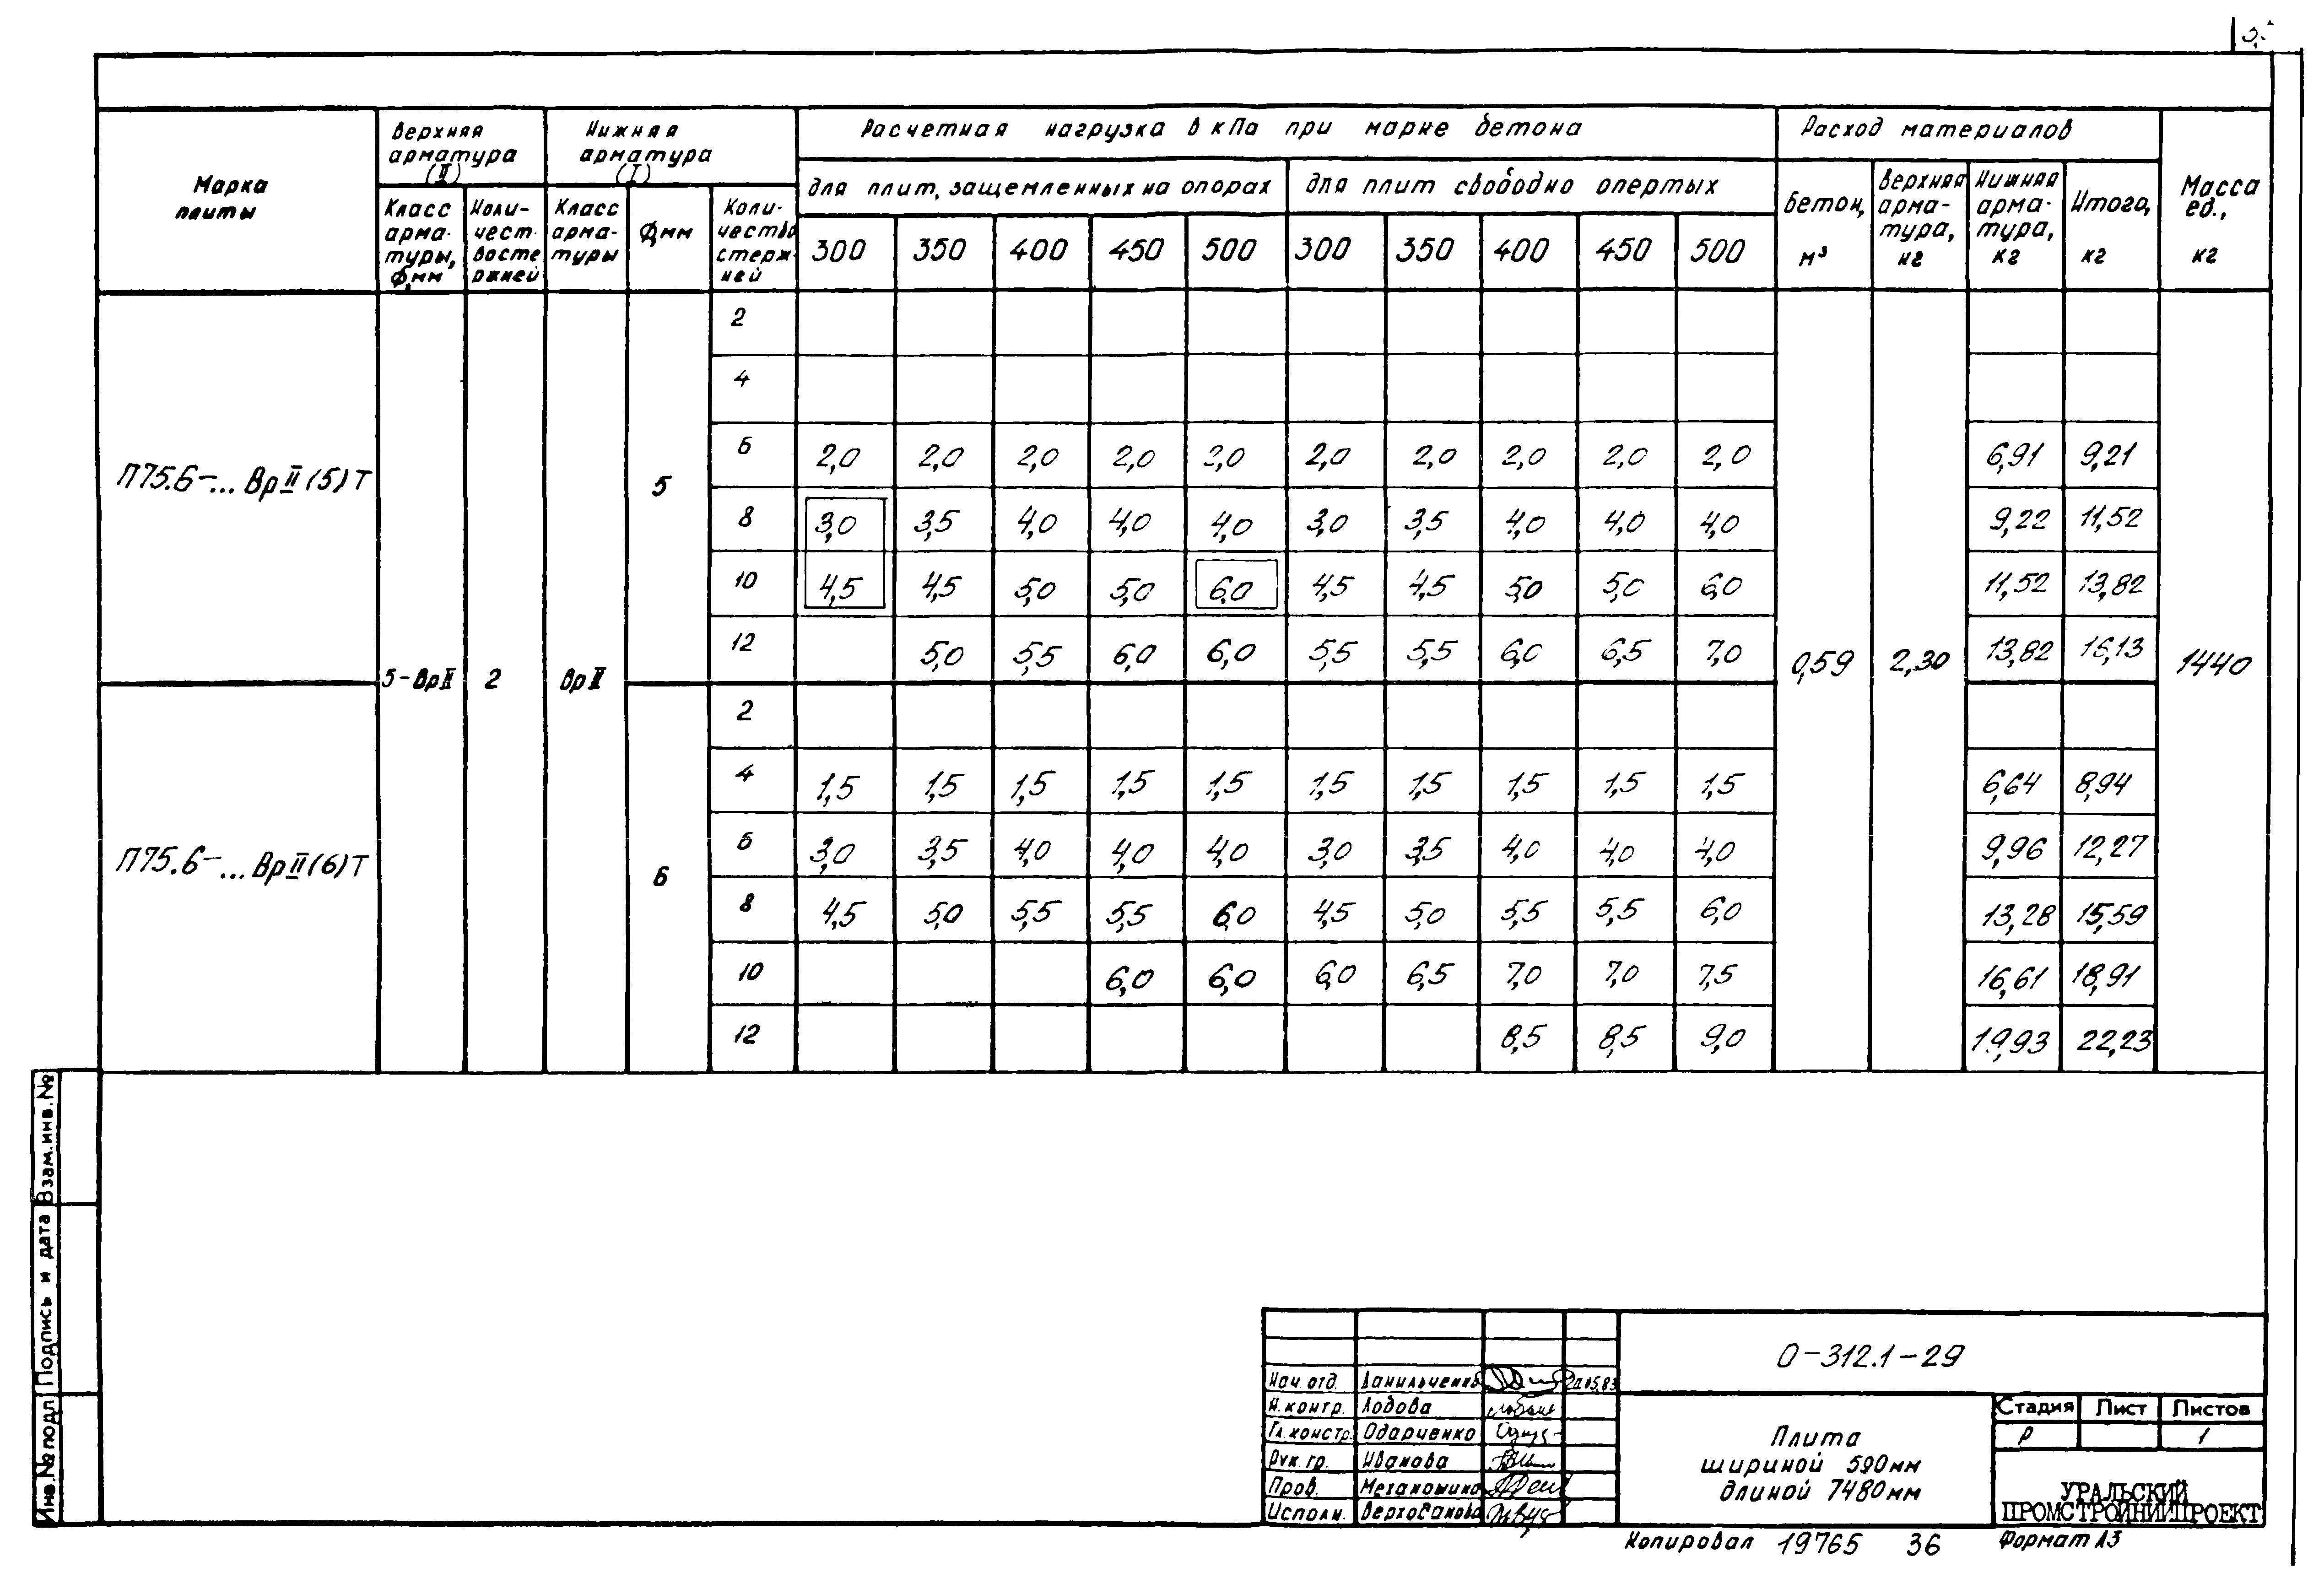 Марка плиты
Верхняя арматура (II)
Нижняя арматура (I)
Расчетная нагрузка в кПа при марке бетона
Расход материалов
Масса ед., кг
Класс арматуры, Ф,мм
Количество стержней
Класс арматуры
Ф,мм
Количество стержней
для плит, защемленных на опорах
для плит свободно опертых
Бетон, м³
Верхняя арматура, кг
Нижняя арматура, кг
Итого, кг
300 350 400 450 500 300 350 400 450 500
П75.6-... ВрII (5) Т
5-ВрII 2 ВрII 5
2
4
6 2,0 2,0 2,0 2,0 2,0 2,0 2,0 2,0 2,0 2,0 6,91 9,21
8 3,0 3,5 4,0 4,0 4,0 3,0 3,5 4,0 4,0 4,0 9,22 11,52
10 4,5 4,5 5,0 5,0 6,0 4,5 4,5 5,0 5,0 6,0 11,52 13,82
12 5,0 5,5 6,0 6,0 5,5 5,5 6,0 6,5 7,0 13,82 16,13
0,59 2,30 1440
П75.6-... ВрII (6) Т
6
2
4 1,5 1,5 1,5 1,5 1,5 1,5 1,5 1,5 1,5 1,5 6,64 8,94
6 3,0 3,5 4,0 4,0 4,0 3,0 3,5 4,0 4,0 4,0 9,96 12,27
8 4,5 5,0 5,5 5,5 6,0 4,5 5,0 5,5 5,5 6,0 13,28 15,59
10 6,0 6,0 6,0 6,5 7,0 7,0 7,5 16,61 18,91
12 8,5 8,5 9,0 19,93 22,23
Взам.инв.№
Подпись и дата
Инв.№подл
О-312.1-29
Нач. отд. Данильченко
Н.контр. Лобова
Гл.констр. Одарченко
Рук. гр. Иванова
Пров. Механошина
Исполн.
Плита
шириной 590мм
длиной 7480мм
Стадия Лист Листов
Р 1
УРАЛЬСКИЙ
ПРОМСТРОЙНИИПРОЕКТ
Копировал 19765 36 Формат А3